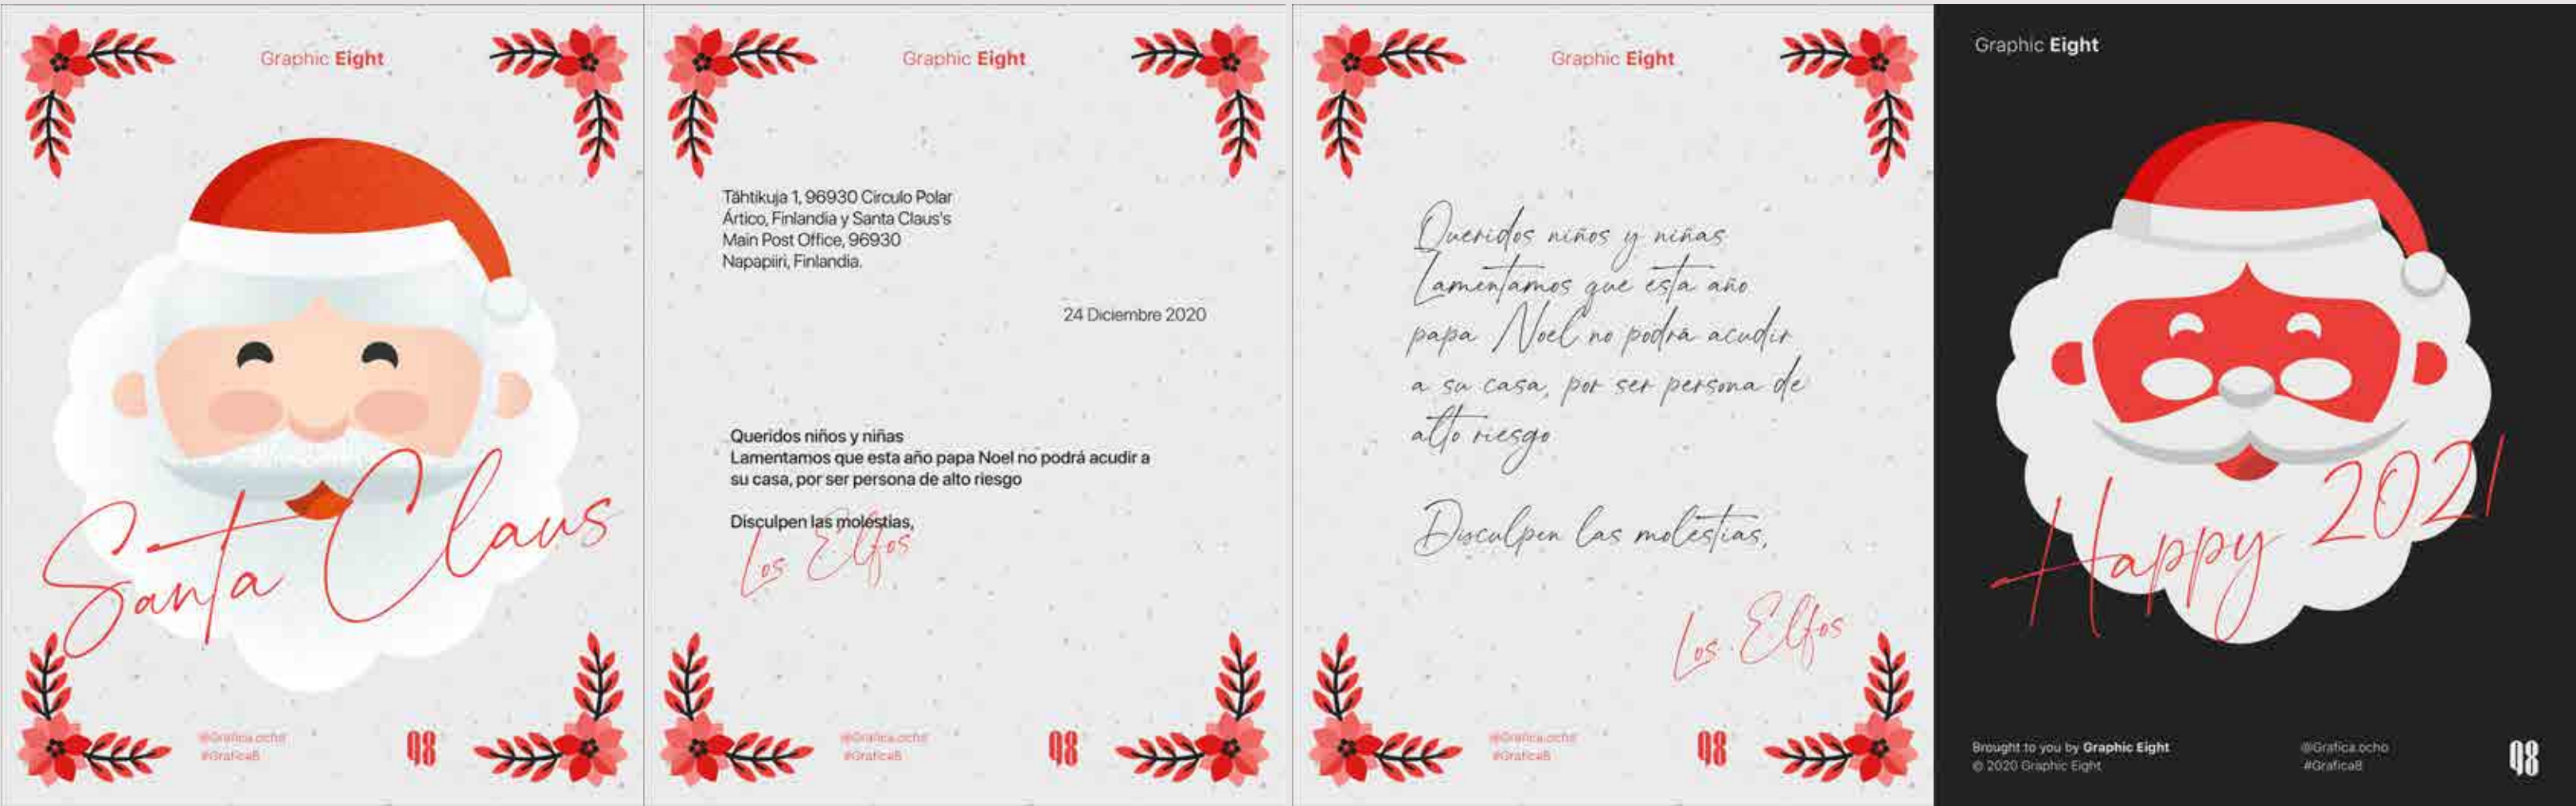 Graphic Eight
Santa Claus
@Grafica.ocho
#Grafica8
98
Graphic Eight
Tähtikuja 1, 96930 Circulo Polar
Ártico, Finlandia y Santa Claus's
Main Post Office, 96930
Napapiiri, Finlandia.
24 Diciembre 2020
Queridos niños y niñas
Lamentamos que esta año papa Noel no podrá acudir a
su casa, por ser persona de alto riesgo
Disculpen las molestias,
Los Elfos
@Grafica.ocho
#Grafica8
98
Graphic Eight
Queridos niños y niñas
Lamentamos que esta año
papa Noel no podrá acudir
a su casa, por ser persona de
alto riesgo
Disculpen las molestias,
Los Elfos
@Grafica.ocho
#Grafica8
98
Graphic Eight
Happy 2021
Brought to you by Graphic Eight
© 2020 Graphic Eight
@Grafica.ocho
#Grafica8
98